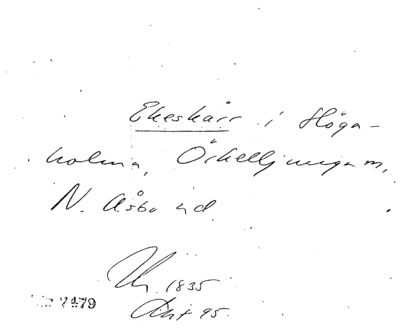 Ekeskärr i Höga-
holma, Örkelljunga sn,
N. Åsbo hd.
1835
95
7479